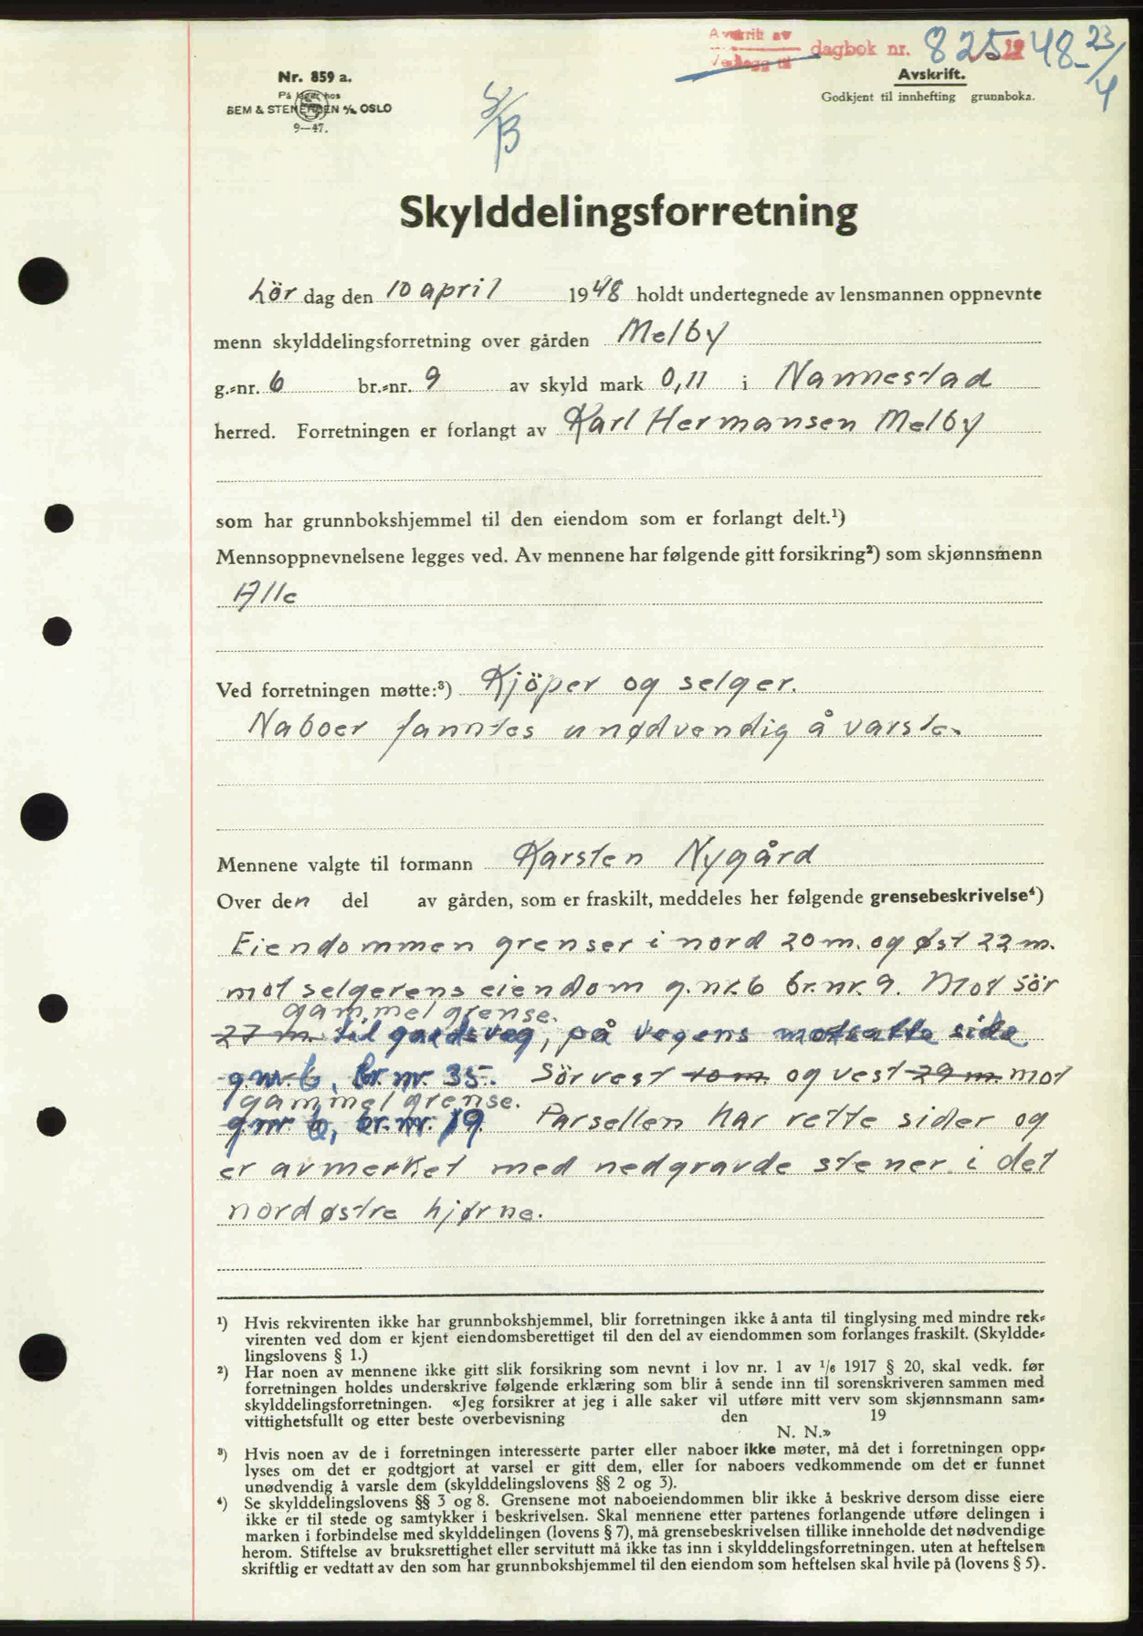 Avskrift av
Vedlegg til
dagbok nr. 825 19 48 23/4
Avskrift.
Godkjent til innhefting grunnboka.
Nr. 859 a.
På lager hos
SEM & STENERSEN A/S OSLO
9—47.
S/B
Skylddelingsforretning
Lör dag den 10 april 1948 holdt undertegnede av lensmannen oppnevnte
menn skylddelingsforretning over gården Melby
g.-nr. 6 br.-nr. 9 av skyld mark 0,11 i Nannestad
herred. Forretningen er forlangt av Karl Hermansen Melby
som har grunnbokshjemmel til den eiendom som er forlangt delt.¹)
Mennsoppnevnelsene legges ved. Av mennene har følgende gitt forsikring²) som skjønnsmenn
Alle
Ved forretningen møtte:³) Kjöper og selger.
Naboer fanntes unødvendig å varsle.
Mennene valgte til formann Karsten Nygård
Over den del av gården, som er fraskilt, meddeles her følgende grensebeskrivelse⁴)
Eiendommen grenser i nord 20 m. og øst 22 m.
mot selgerens eiendom g.nr.6 br.nr.9. Mot sör
gammel grense.
27 m. til gardsveg, på vegens motsatte side
gnr. 6, br. nr. 35. Sörvest 10 m. og vest 29 m. mot
gammel grense.
gnr. 6, br. nr. 19 Parsellen har rette sider og
er avmerket med nedgravde stener i det
nordøstre hjørne.
¹) Hvis rekvirenten ikke har grunnbokshjemmel, blir forretningen ikke å anta til tinglysing med mindre rek-
virenten ved dom er kjent eiendomsberettiget til den del av eiendommen som forlanges fraskilt. (Skyldde-
lingslovens § 1.)
²) Har noen av mennene ikke gitt slik forsikring som nevnt i lov nr. 1 av 1/6 1917 § 20, skal vedk. før
forretningen holdes underskrive følgende erklæring som blir å sende inn til sorenskriveren sammen med
skylddelingsforretningen. «Jeg forsikrer at jeg i alle saker vil utføre mitt verv som skjønnsmann sam-
vittighetsfullt og etter beste overbevisning den 19
N. N.»
³) Hvis noen av de i forretningen interesserte parter eller naboer ikke møter, må det i forretningen opp-
lyses om det er godtgjort at varsel er gitt dem, eller for naboers vedkommende om det er funnet
unødvendig å varsle dem (skylddelingslovens §§ 2 og 3).
⁴) Se skylddelingslovens §§ 3 og 8. Grensene mot naboeiendommen blir ikke å beskrive dersom disse eiere
ikke er til stede og samtykker i beskrivelsen. Skal mennene etter partenes forlangende utføre delingen i
marken i forbindelse med skylddelingen (lovens § 7), må grensebeskrivelsen tillike inneholde det nødvendige
herom. Stiftelse av bruksrettighet eller servitutt må ikke tas inn i skylddelingsforretningen, uten at heftelsen
skriftlig er vedtatt av den som har grunnbokshjemmel til den eiendom som heftelsen skal hvile på (lovens § 5).